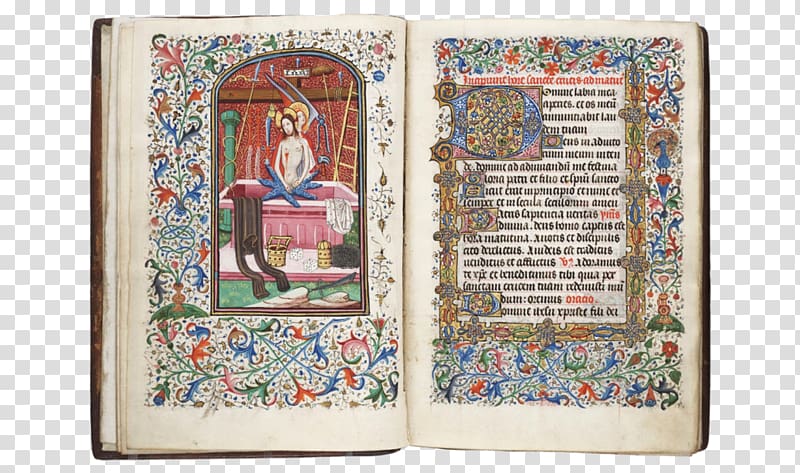 INRI
Incipiunt hore sancte crucis ad matut
Domine labia mea
aperies. et os meū
annuntiabit lau
dem tuam
Deus in adiuto
rium meum inten
de. domine ad adiuvandum me festina
Gloria patri et filio et spūi sancto
Sicut erat in principio et nunc et
semper et in secula seculorum amen
Patris sapientia veritas
divina. deus homo captus est
hora matutina. A notis et discipulis
cito derelictus. A iudeis est traditus
venditus et afflictus V⁊ Adoramus
te xp̄e et benedicimus tibi quia per
sanctam crucem tuam redemisti mū
dum: oremus oratio
Domine iesu xpriste fili dei